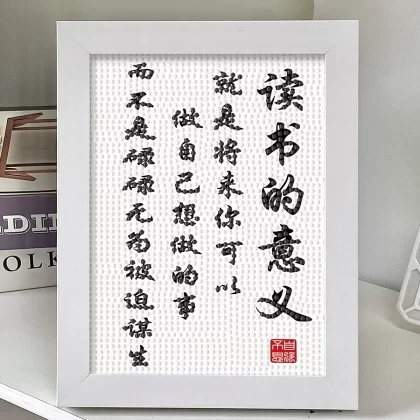 读书的意义
就是将来你可以
做自己想做的事
而不是碌碌无为被迫谋生
自强不息
DII
OLK